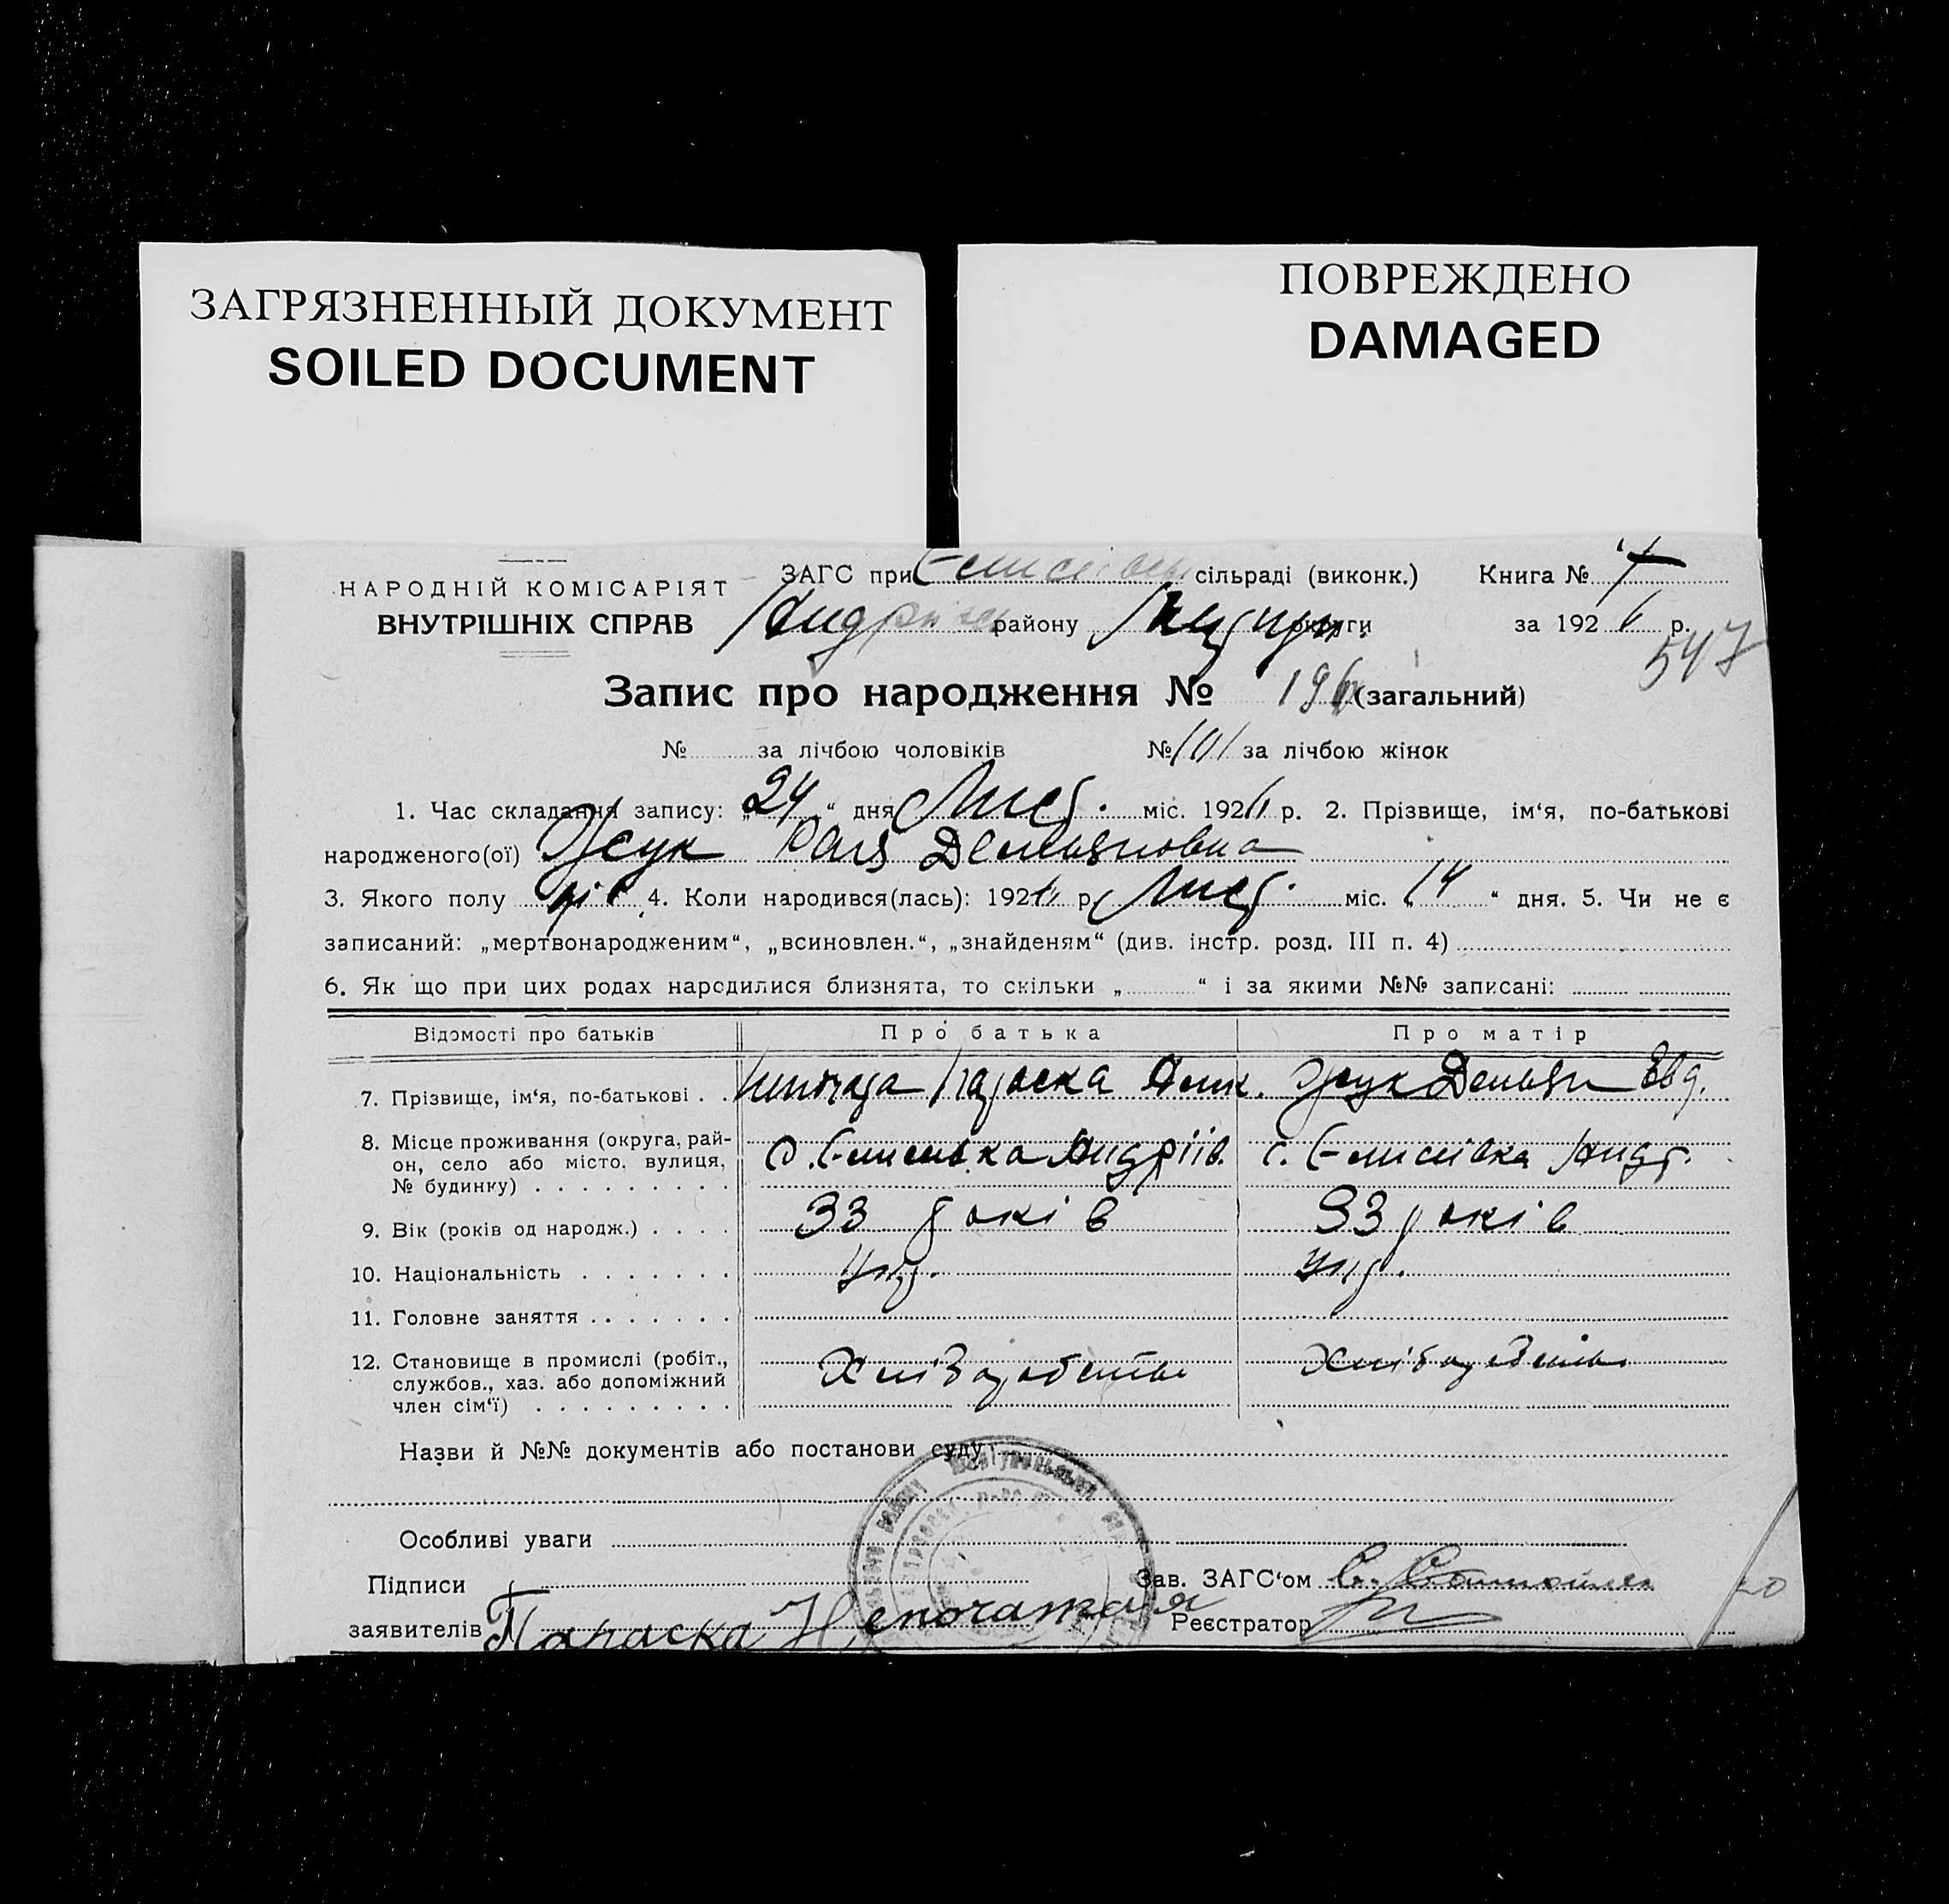 ЗАГРЯЗНЕННЫЙ ДОКУМЕНТ
SOILED DOCUMENT
ПОВРЕЖДЕНО
DAMAGED
НАРОДНІЙ КОМІСАРІЯТ
ВНУТРІШНІХ СПРАВ
ЗАГС при сільраді (виконк.) Книга №
району округи за 192 р.
547
Запис про народження № 196 (загальний)
№ за лічбою чоловіків № 101 за лічбою жінок
1. Час складання запису: „24“ дня Лист. міс. 1926 р. 2. Прізвище, ім'я, по-батькові
народженого(ої) Демьяновна
3. Якого полу жін 4. Коли народився(лась): 1926 р. Лист. міс. „14“ дня. 5. Чи не є
записаний: „мертвонародженим“, „всиновлен.“, „знайденям“ (див. інстр. розд. III п. 4)
6. Як що при цих родах народилися близнята, то скільки „ “ і за якими №№ записані:
Відомості про батьків Про батька Про матір
7. Прізвище, ім'я, по-батькові . . Параска Демьян Евд.
8. Місце проживання (округа, рай-
он, село або місто, вулиця,
№ будинку) с. Елисівка Андріїв. с. Елисівка Андр.
9. Вік (років од народж.) . . . . 33 років 33 років
10. Національність . . . . . . . Укр. Укр.
11. Головне заняття . . . . . . .
12. Становище в промислі (робіт.,
службов., хаз. або допоміжний
член сім'ї) Хлібороб
Назви й №№ документів або постанови суду
Особливі уваги
Підписи Зав. ЗАГС'ом
заявителів Параска Непочатая Реєстратор